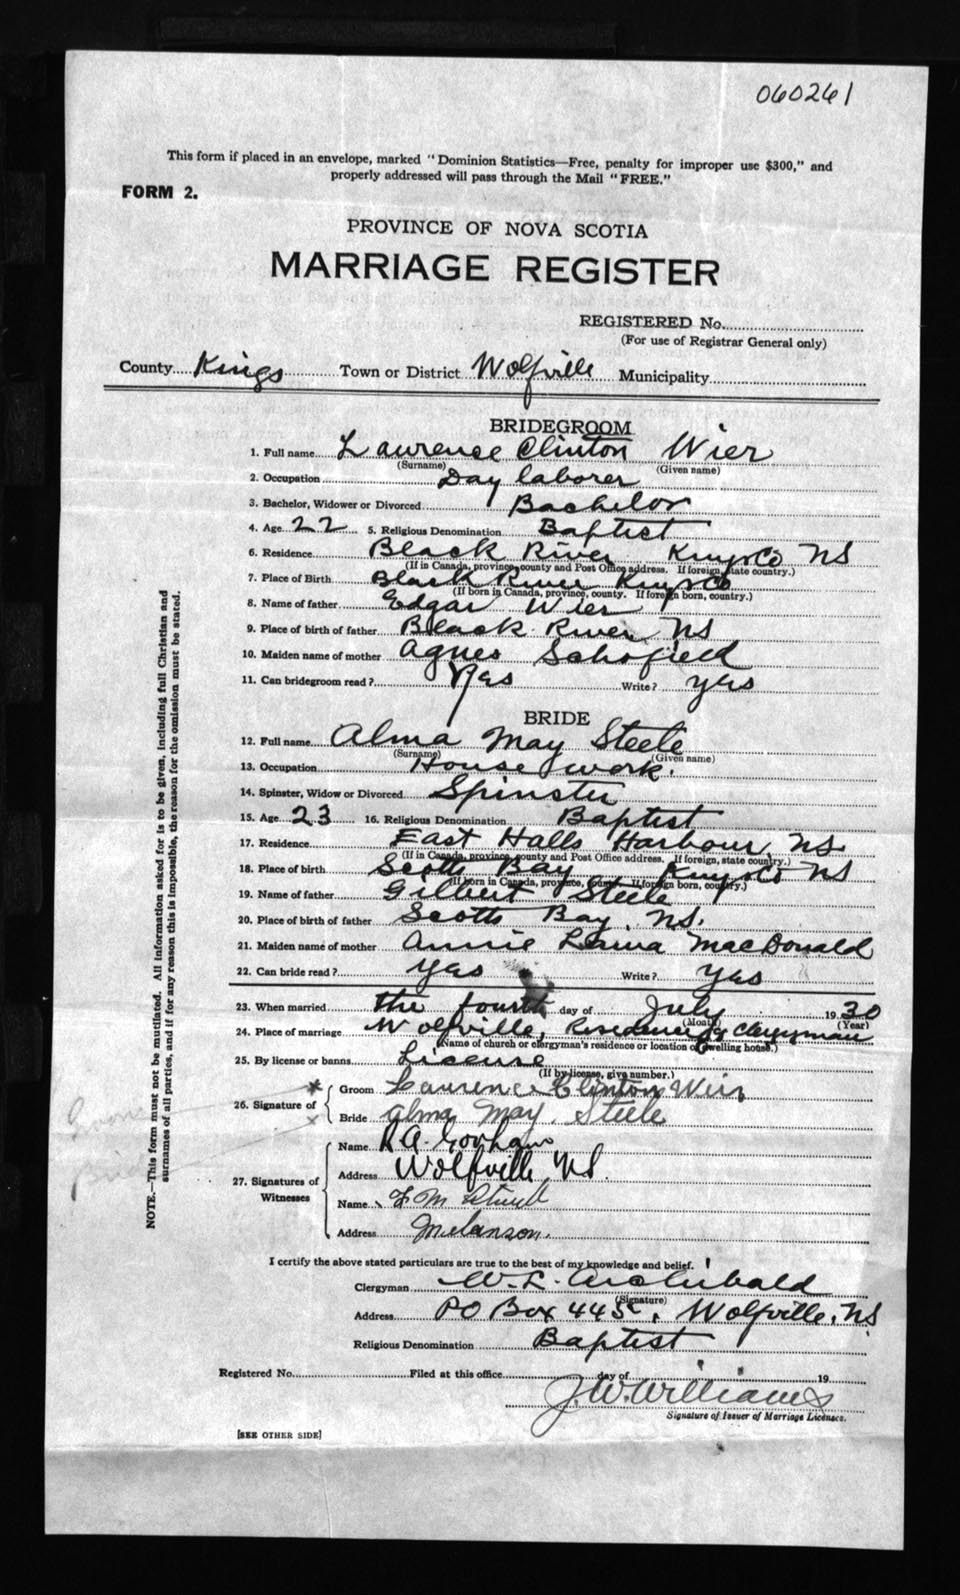 060261
This form if placed in an envelope, marked "Dominion Statistics—Free, penalty for improper use $300," and
properly addressed will pass through the Mail "FREE."
FORM 2.
PROVINCE OF NOVA SCOTIA
MARRIAGE REGISTER
REGISTERED No.
(For use of Registrar General only)
County Kings Town or District Wolfville Municipality
BRIDEGROOM
1. Full name Laurence Clinton Wier
(Surname) (Given name)
2. Occupation Day laborer
3. Bachelor, Widower or Divorced Bachelor
4. Age 22 5. Religious Denomination Baptist
6. Residence Black River Kings Co NS
(If in Canada, province, county and Post Office address. If foreign, state country.)
7. Place of Birth Black River Kings Co
(If born in Canada, province, county. If foreign born, country.)
8. Name of father Edgar Wier
9. Place of birth of father Black River NS
10. Maiden name of mother Agnes Schofield
11. Can bridegroom read? Yes Write? yes
BRIDE
12. Full name Alma May Steele
(Surname) (Given name)
13. Occupation House work.
14. Spinster, Widow or Divorced Spinster
15. Age 23 16. Religious Denomination Baptist
17. Residence East Halls Harbour, NS.
(If in Canada, province, county and Post Office address. If foreign, state country.)
18. Place of birth Scotts Bay Kings Co NS
(If born in Canada, province, county. If foreign born, country.)
19. Name of father Gilbert Steele
20. Place of birth of father Scotts Bay, NS.
21. Maiden name of mother Annie MacDonald
22. Can bride read? yes Write? yes
23. When married the fourth day of July 1930
(Month) (Year)
24. Place of marriage Wolfville, Residence of Clergyman
(Name of church or clergyman's residence or location of dwelling house.)
25. By license or banns License
(If by license, give number.)
26. Signature of
Groom Laurence Clinton Weir
Bride Alma May Steele
27. Signatures of Witnesses
Name R A. Gorham
Address Wolfville NS.
Name
Address Melanson.
I certify the above stated particulars are true to the best of my knowledge and belief.
Clergyman W. L. Archibald
(Signature)
Address PO Box 445, Wolfville, NS
Religious Denomination Baptist
Registered No. Filed at this office day of 19
J. W. Williams
Signature of Issuer of Marriage Licenses.
[SEE OTHER SIDE]
NOTE.—This form must not be mutilated. All information asked for is to be given, including full Christian and
surnames of all parties, and if for any reason this is impossible, the reason for the omission must be stated.